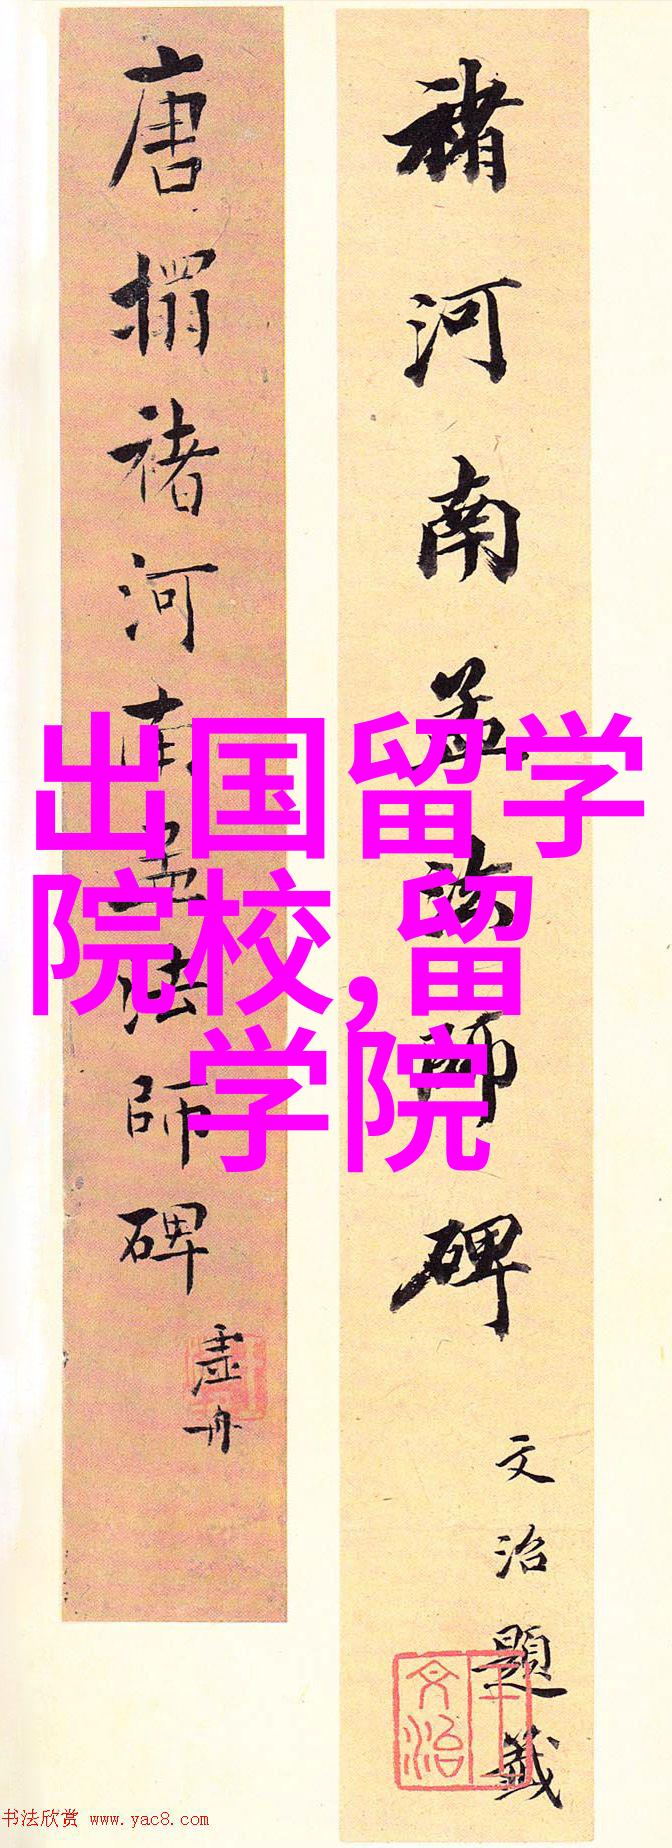 褚河南孟法師碑
文治題籤
王文治
唐搨褚河南孟法師碑
虛舟
出国留学
院校,留
学院
书法欣赏 www.yac8.com